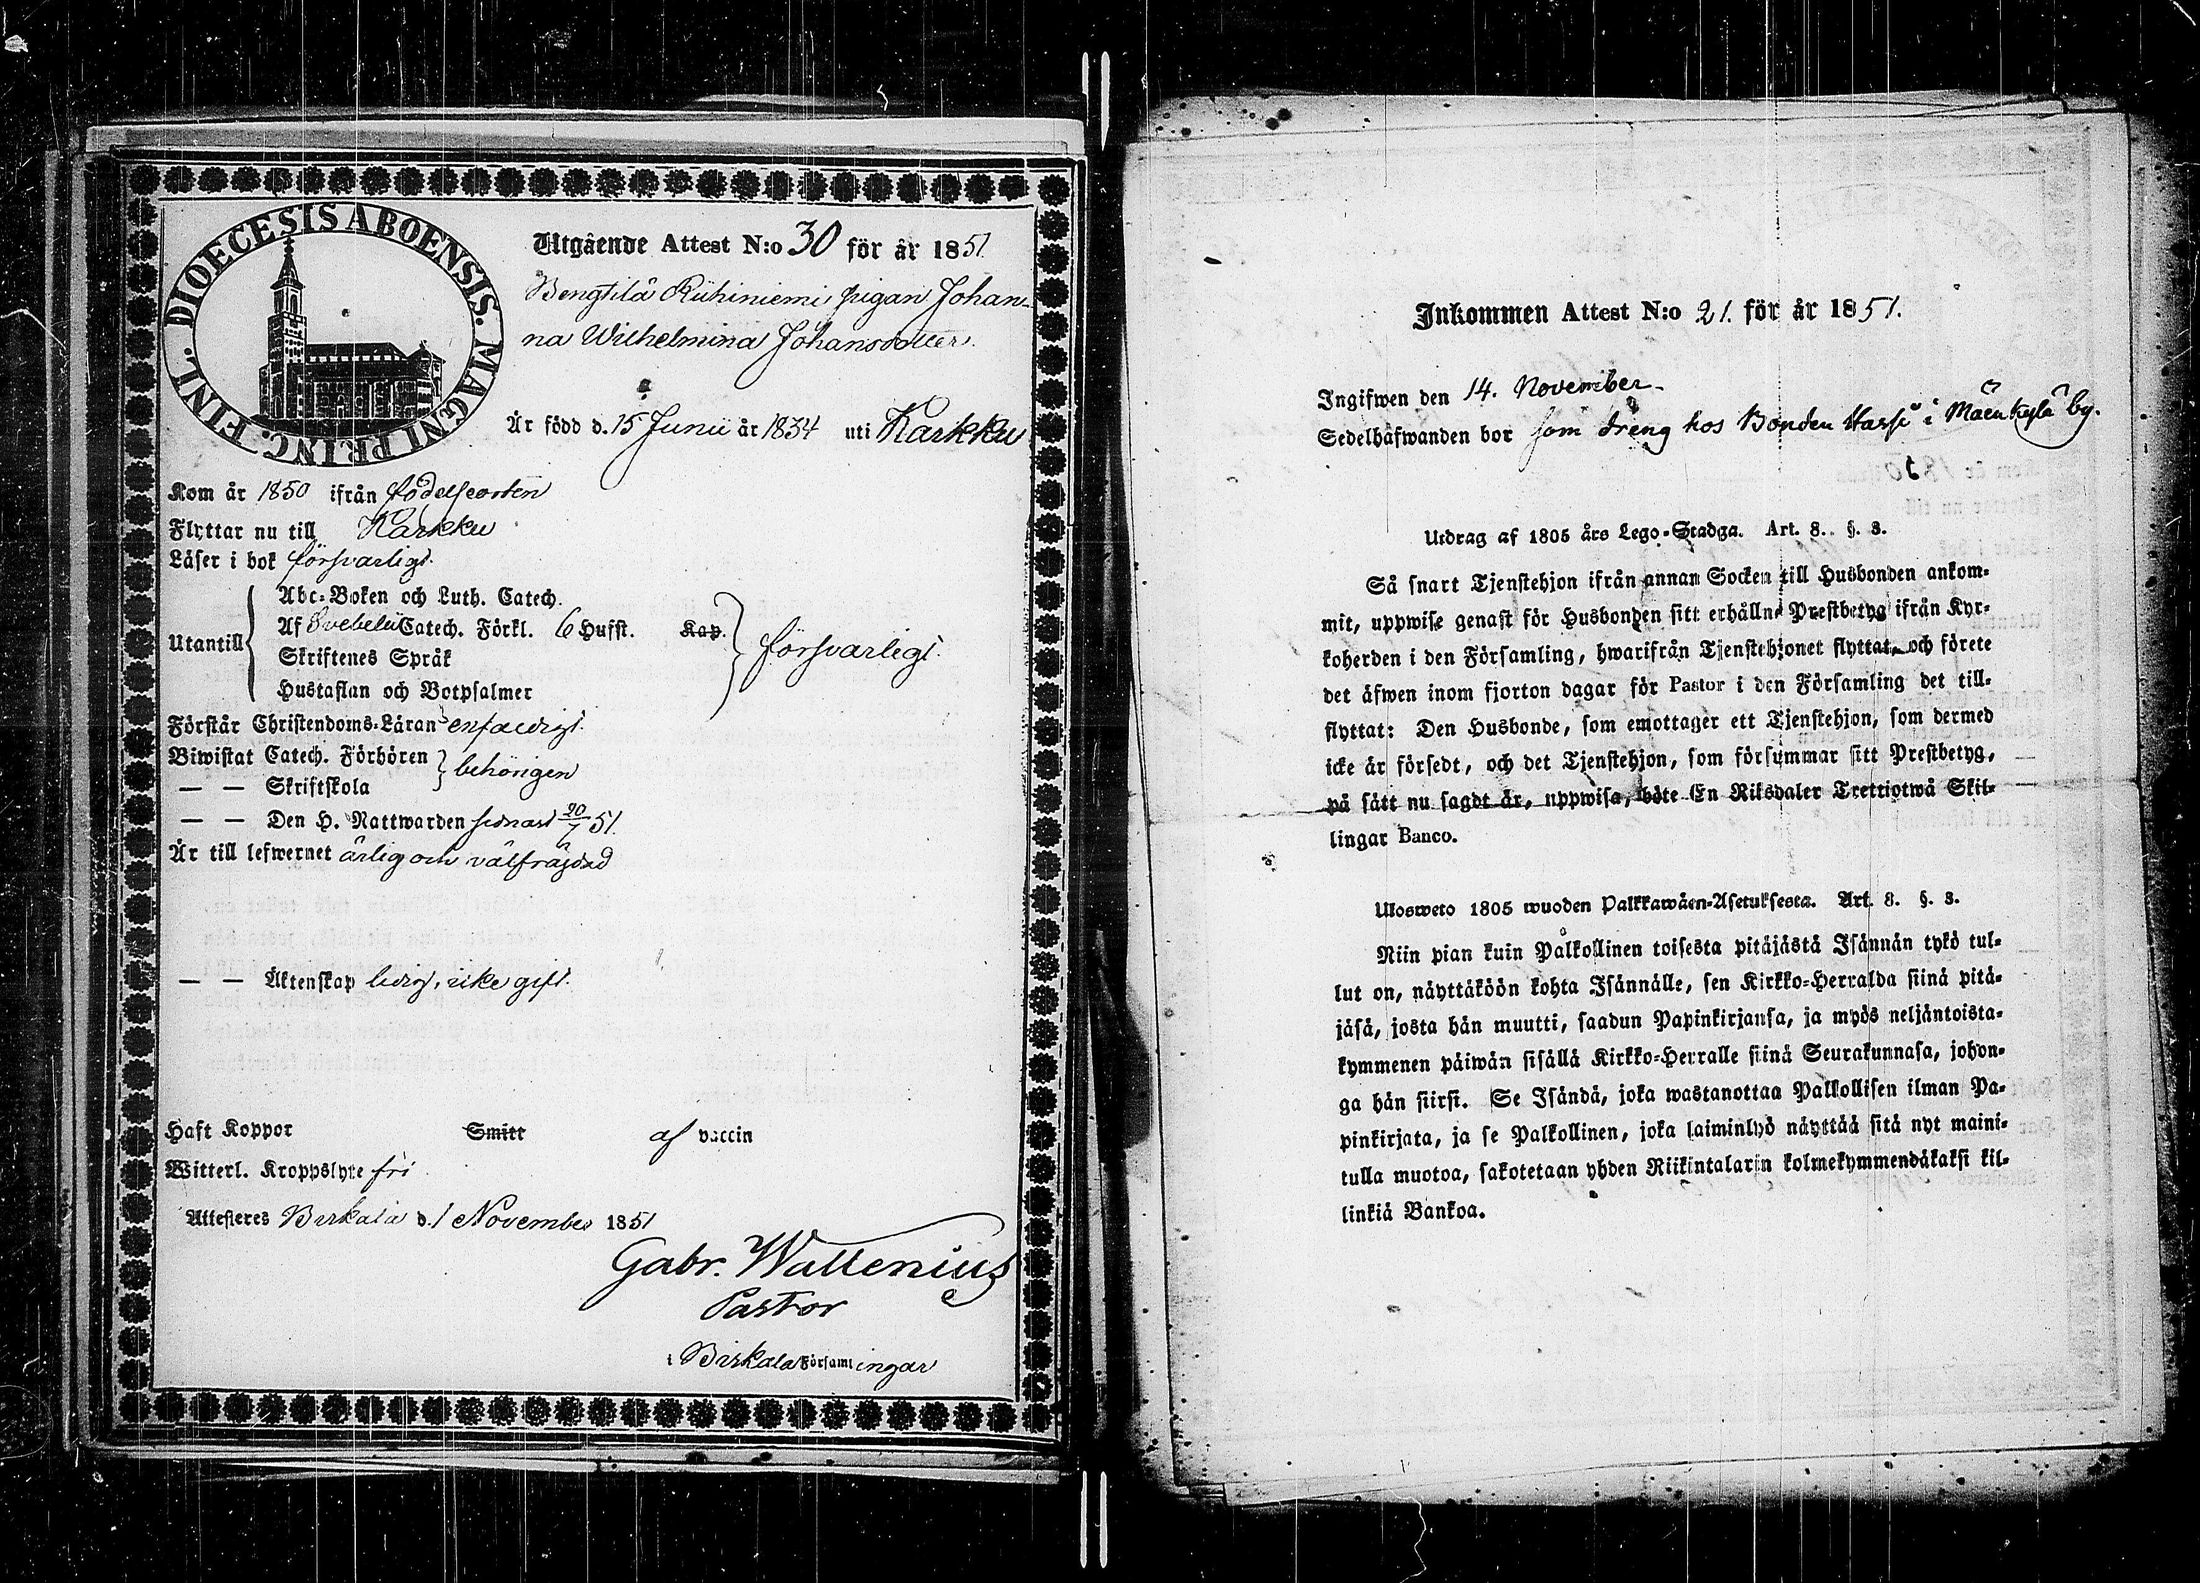 DIOECESIS ABOENSIS. MAGNI PRINC. FINL.
Utgående Attest N:o 30 för år 1851
Bengtilä Riihiniemi pigan Johan-
na Wilhelmina Johansdotter.
Är född d. 15 Junii år 1834 uti Karkku
Kom år 1850 ifrån födelseorten
Flyttar nu till Karkku
Läser i bok försvarligt.
Utantill
Abc-Boken och Luth. Catech.
Af Svebelii Catech. Förkl. 6 Hufst. Kap.
Skriftenes Språk
Hustaflan och Botpsalmer
försvarligt.
Förstår Christendoms-Läran enfaldigt.
Biwistat Catech. Förhören
— — Skriftskola
behörigen
— — Den H. Nattwarden sednast 20/7 51.
Är till lefwernet ärlig och välfräjdad
— — Äktenskap ledig, icke gift.
Haft Koppor Smitt af vaccin
Witterl. Kroppslyte fri
Attesteres Birkala d. 1 November 1851
Gabr. Wallenius
Pastor
i Birkala Församlingar
Inkommen Attest N:o 21. för år 1851.
Ingifwen den 14. November.
Sedelhafwanden bor som dräng hos Bonden Hassi i Mäenkylä by.
Utdrag af 1805 års Lego-Stadga. Art. 8. §. 3.
Så snart Tjenstehjon ifrån annan Socken till Husbonden ankom-
mit, uppwise genast för Husbonden sitt erhållne Prestbetyg ifrån Kyr-
koherden i den Församling, hwarifrån Tjenstehjonet flyttat, och förete
det äfwen inom fjorton dagar för Pastor i den Församling det till-
flyttat: Den Husbonde, som emottager ett Tjenstehjon, som dermed
icke är försedt, och det Tjenstehjon, som försummar sitt Prestbetyg,
på sätt nu sagdt är, uppwisa, böte En Riksdaler Trettiotwå Skil-
lingar Banco.
Ulosweto 1805 wuoden Palkkawäen-Asetuksesta. Art. 8. §. 3.
Niin pian kuin Palkollinen toisesta pitäjästä Isännän tykö tul-
lut on, näyttäköön kohta Isännälle, sen Kirkko-Herralda siinä pitä-
jäsä, josta hän muutti, saadun Papinkirjansa, ja myös neljäntoista-
kymmenen päiwän sisällä Kirkko-Herralle siinä Seurakunnasa, johon-
ga hän siirsi. Se Isändä, joka wastanottaa Palkollisen ilman Pa-
pinkirjata, ja se Palkollinen, joka laiminlyö näyttää sitä nyt maini-
tulla muotoa, sakotetaan yhden Riikintalarin kolmekymmendäkaksi kil-
linkiä Bankoa.